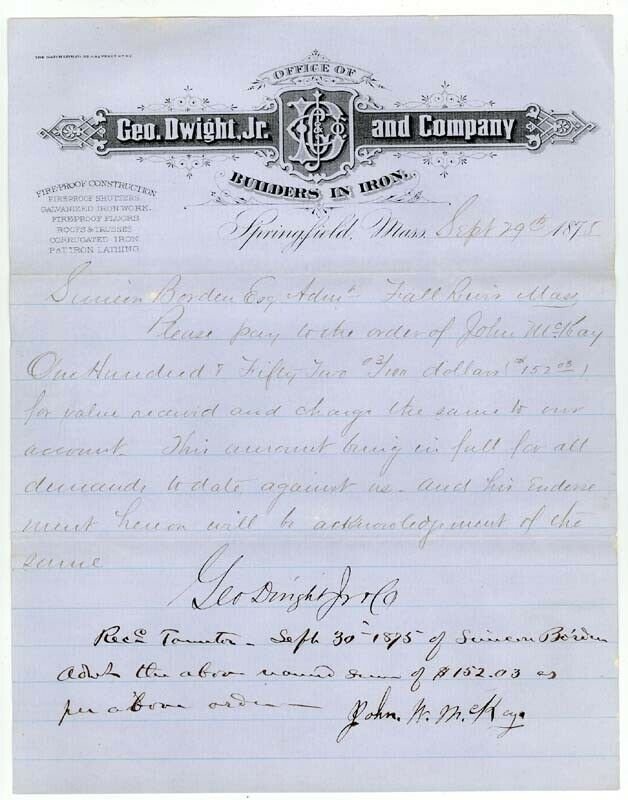 OFFICE OF
Geo. Dwight, Jr. and Company
BUILDERS IN IRON.
FIREPROOF CONSTRUCTION
FIREPROOF SHUTTERS.
GALVANIZED IRON WORK.
FIREPROOF FLOORS
ROOFS & TRUSSES
CORRUGATED IRON
PAT. IRON LATHING
Springfield, Mass. Sept 29th 1875
Simeon Borden Esq Admr Fall River Mass
Please pay to the order of John McKay
One Hundred & Fifty Two 03/100 dollars ($152 03)
for value receivd and charge the same to our
account. This amount being in full for all
demands to date against us - and his Endorse
ment hereon will be acknowledgement of the
same
Geo Dwight Jr & Co
Recd Taunton - Sept 30 1875 of Simeon Borden
Admr the above named sum of $152.03 as
per above order -
John. W. McKay.